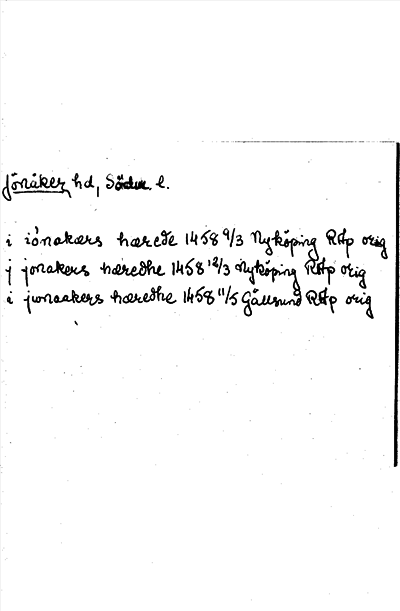 Jönåker hd, Söder. l.
i iónakærs hærede 1458 9/3 Nyköping RAp orig
j jonakers hæredhe 1458 12/3 Nyköping RAp orig
i jwnaakers hæredhe 1458 11/5 RAp orig